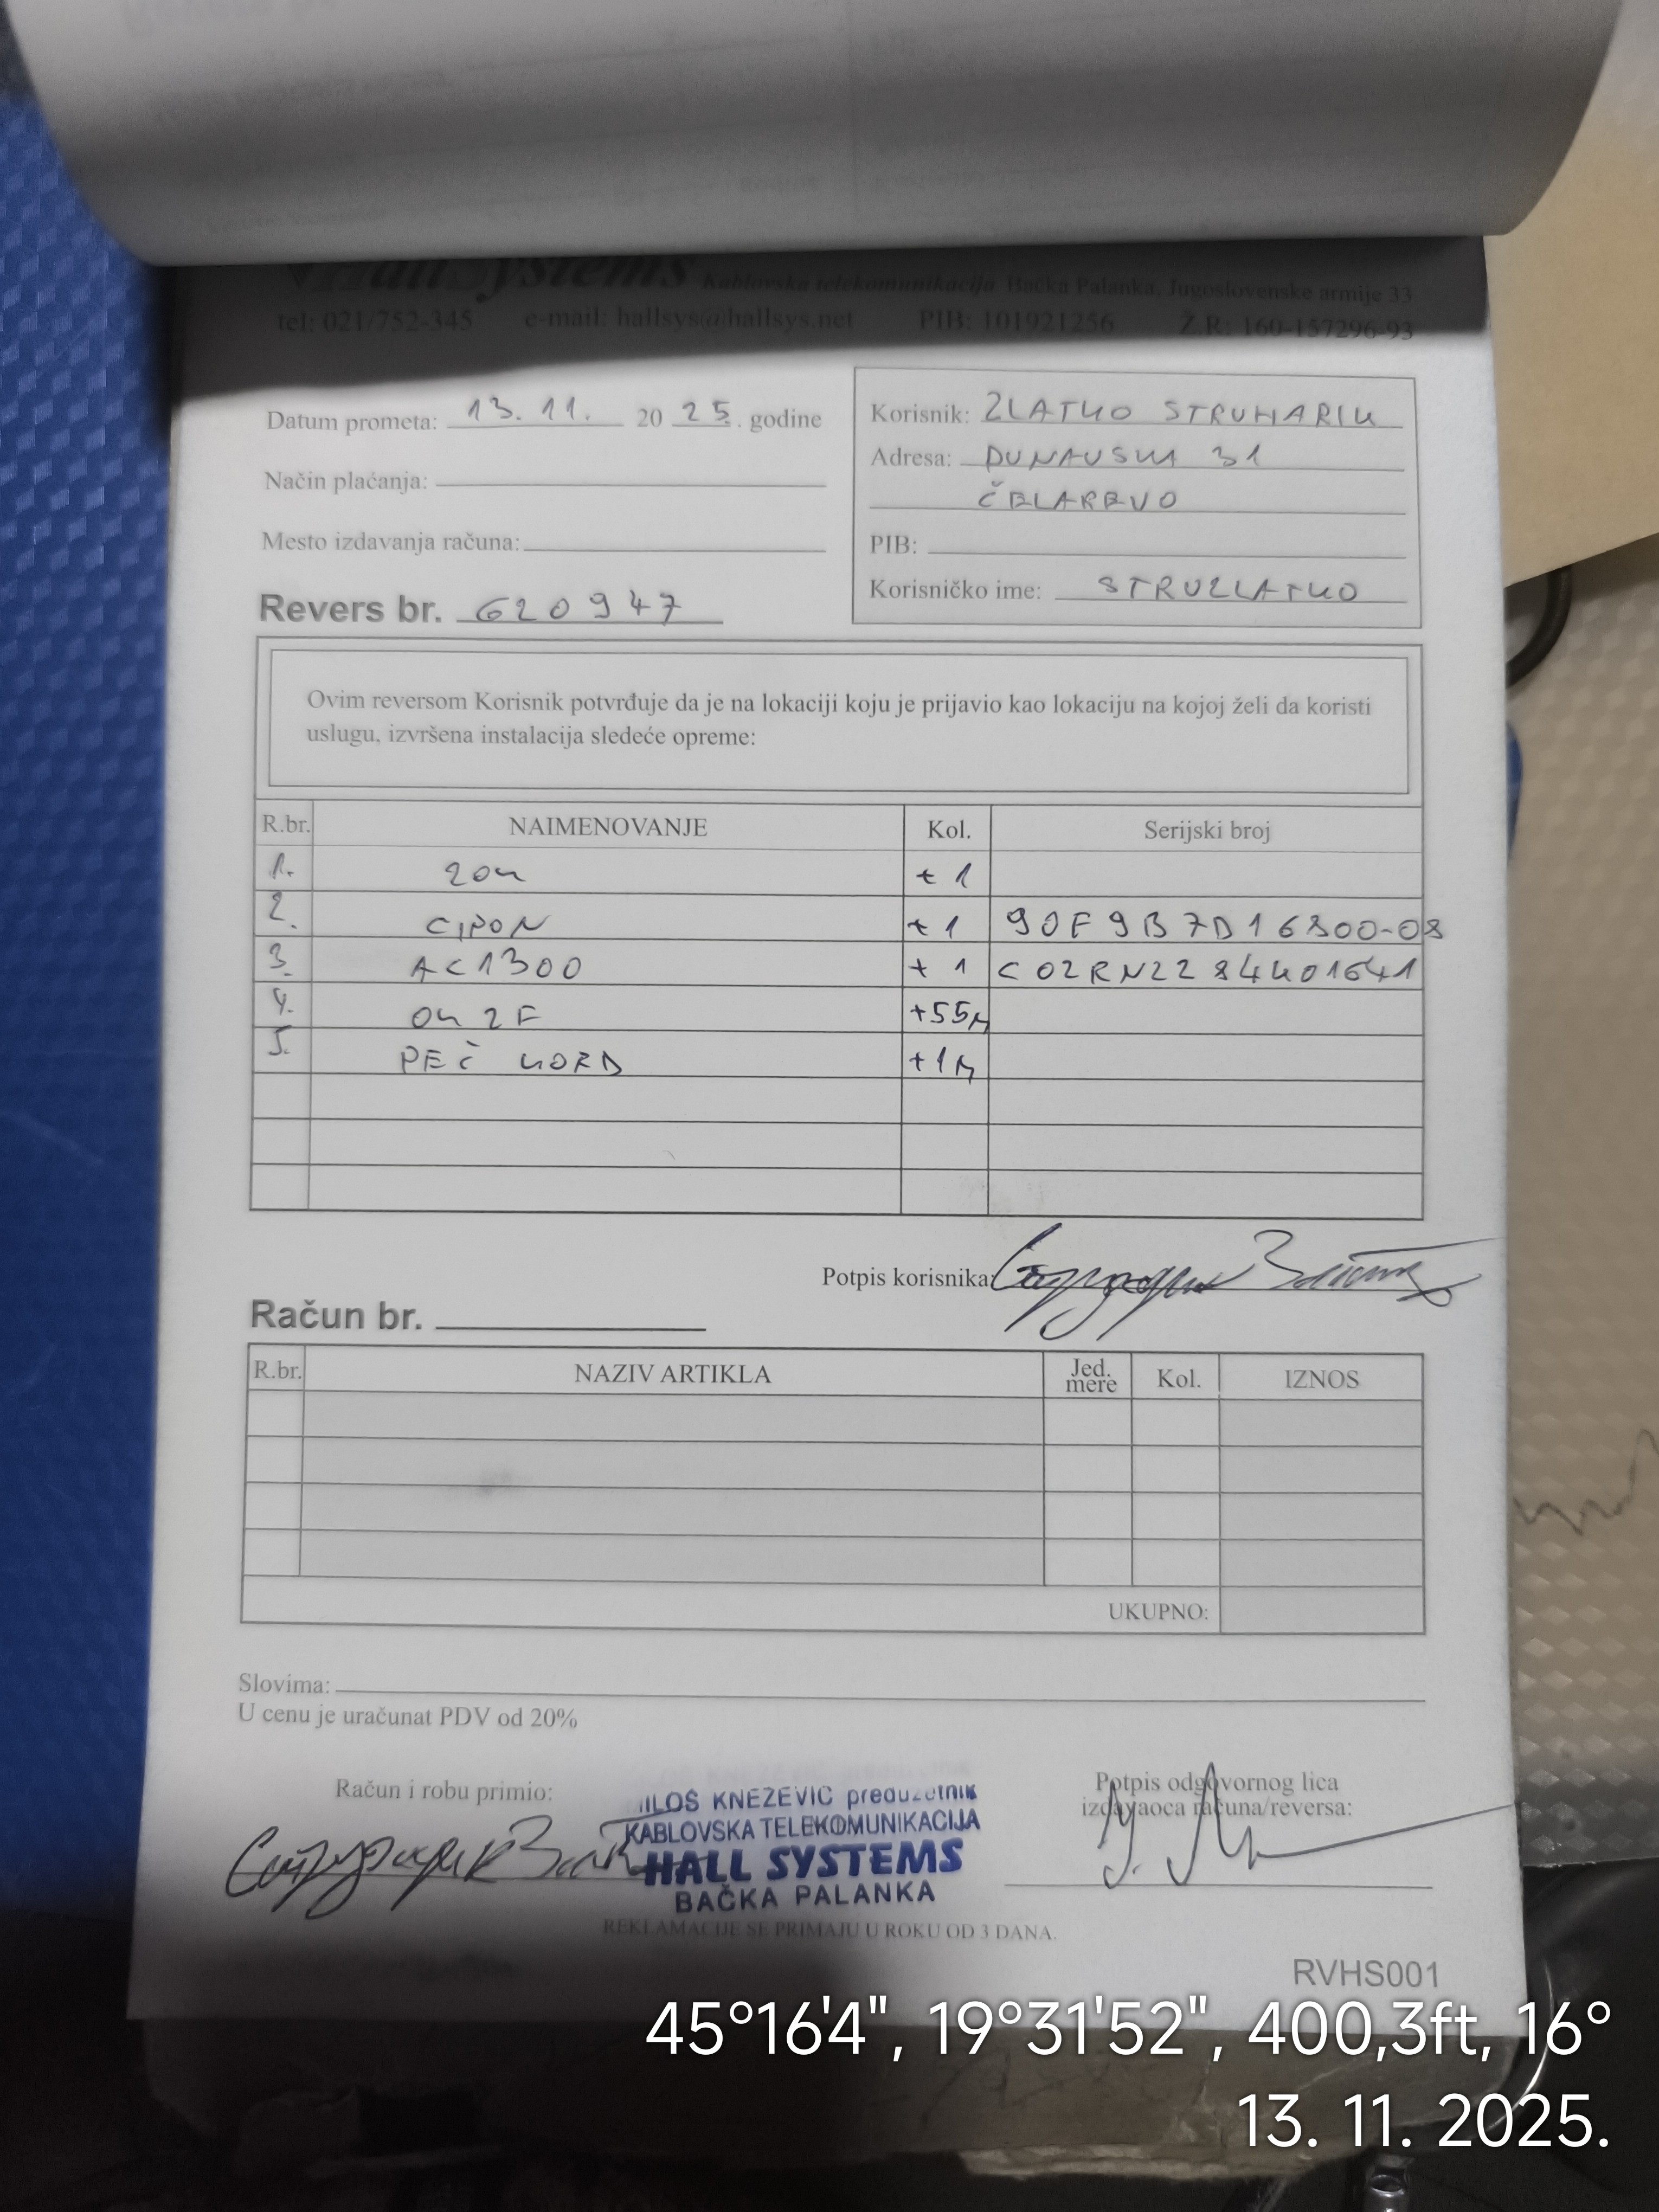 Hall Systems Kablovska telekomunikacija Bačka Palanka, Jugoslovenske armije 33
tel: 021/752-345 e-mail: hallsys@hallsys.net PIB: 101921256 Ž.R: 160-157296-93
Datum prometa: 13. 11. 20 25. godine
Način plaćanja:
Mesto izdavanja računa:
Revers br. 620947
Korisnik: ZLATKO STRUHARIK
Adresa: DUNAVSKA 31
ČELAREVO
PIB:
Korisničko ime: STRUZLATKO
Ovim reversom Korisnik potvrđuje da je na lokaciji koju je prijavio kao lokaciju na kojoj želi da koristi
uslugu, izvršena instalacija sledeće opreme:
R.br. NAIMENOVANJE Kol. Serijski broj
1. ZOK +1
2. CIPON +1 90F9B7D16800-08
3. AC1300 +1 C02RN2284K01641
4. OK 2F +55M
5. PEČ KORD +1M
Potpis korisnika:
Račun br.
R.br. NAZIV ARTIKLA Jed. mere Kol. IZNOS
UKUPNO:
Slovima:
U cenu je uračunat PDV od 20%
Račun i robu primio:
Potpis odgovornog lica
izdavaoca računa/reversa:
MILOŠ KNEŽEVIĆ preduzetnik
KABLOVSKA TELEKOMUNIKACIJA
HALL SYSTEMS
BAČKA PALANKA
REKLAMACIJE SE PRIMAJU U ROKU OD 3 DANA.
RVHS001
45°16'4", 19°31'52", 400,3ft, 16°
13. 11. 2025.